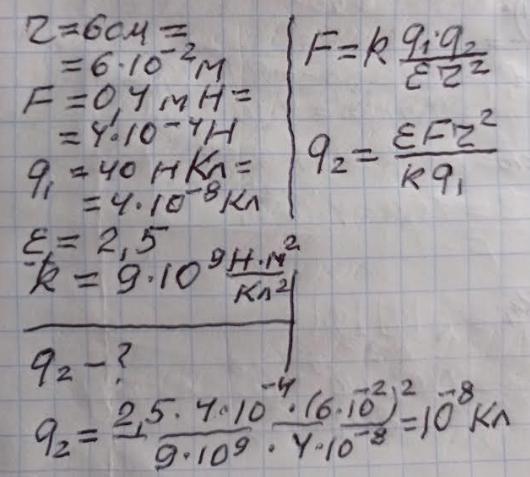 r = 6 см =
= 6·10⁻² м
F = 0,4 мН =
= 4·10⁻⁴ Н
q₁ = 40 нКл =
= 4·10⁻⁸ Кл
ε = 2,5
k = 9·10⁹ Н·м²/Кл²
q₂ - ?
F = k q₁·q₂/εr²
q₂ = εFr²/kq₁
q₂ = 2,5·4·10⁻⁴·(6·10⁻²)²/9·10⁹·4·10⁻⁸ = 10⁻⁸ Кл